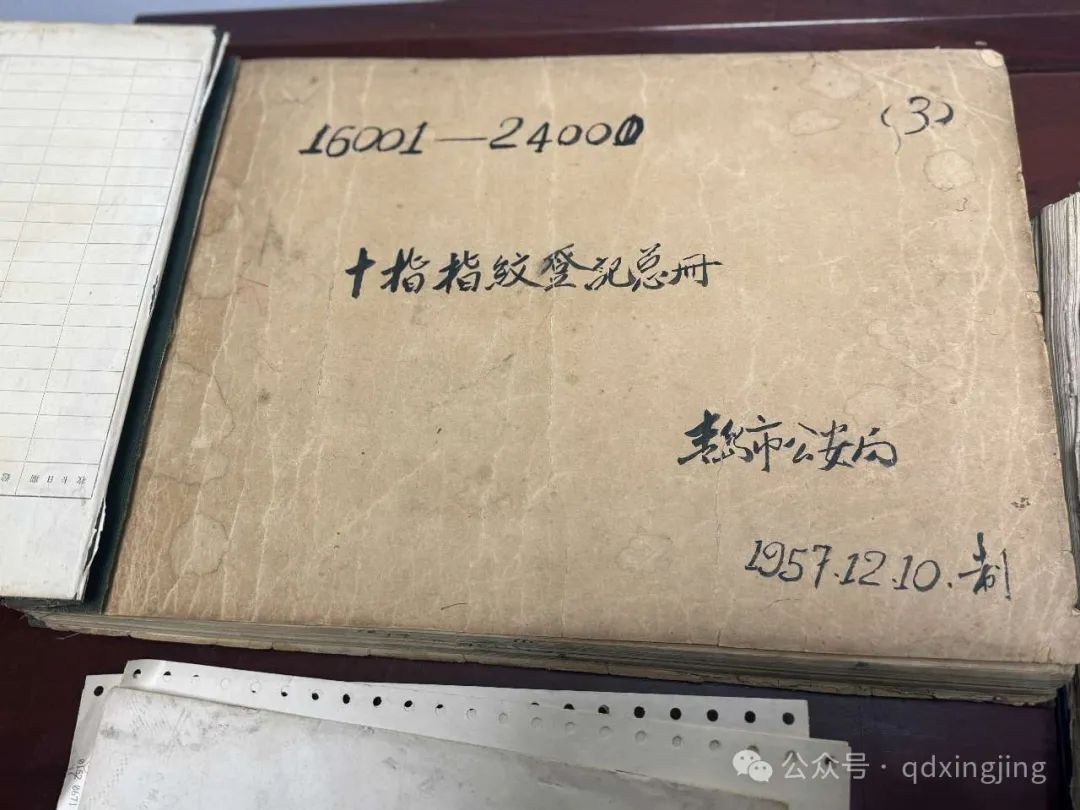 16001—24000
(3)
3
十指指紋登记总册
青岛市公安局
1957.12.10.制
公众号·qdxingjing